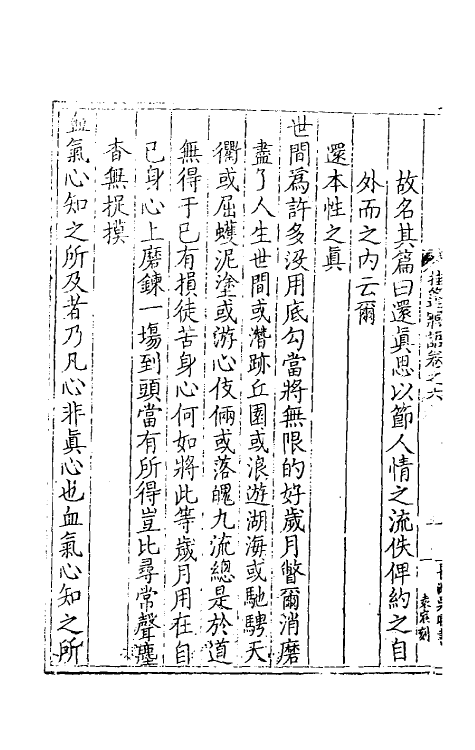 故名其篇曰還眞思以節人情之流佚俾約之自
外而之内云爾
還本性之眞
世間爲許多没用底勾當將無限的好歲月瞥爾消磨
盡了人生世間或潛跡丘園或浪遊湖海或馳騁天
衢或屈蠖泥塗或游心伎倆或落魄九流總是於道
無得于已有損徒苦身心何如將此等歲月用在自
已身心上磨鍊一塲到頭當有所得豈比尋常聲塵
杳無捉摸
血氣心知之所及者乃凡心非眞心也血氣心知之所
卷之六